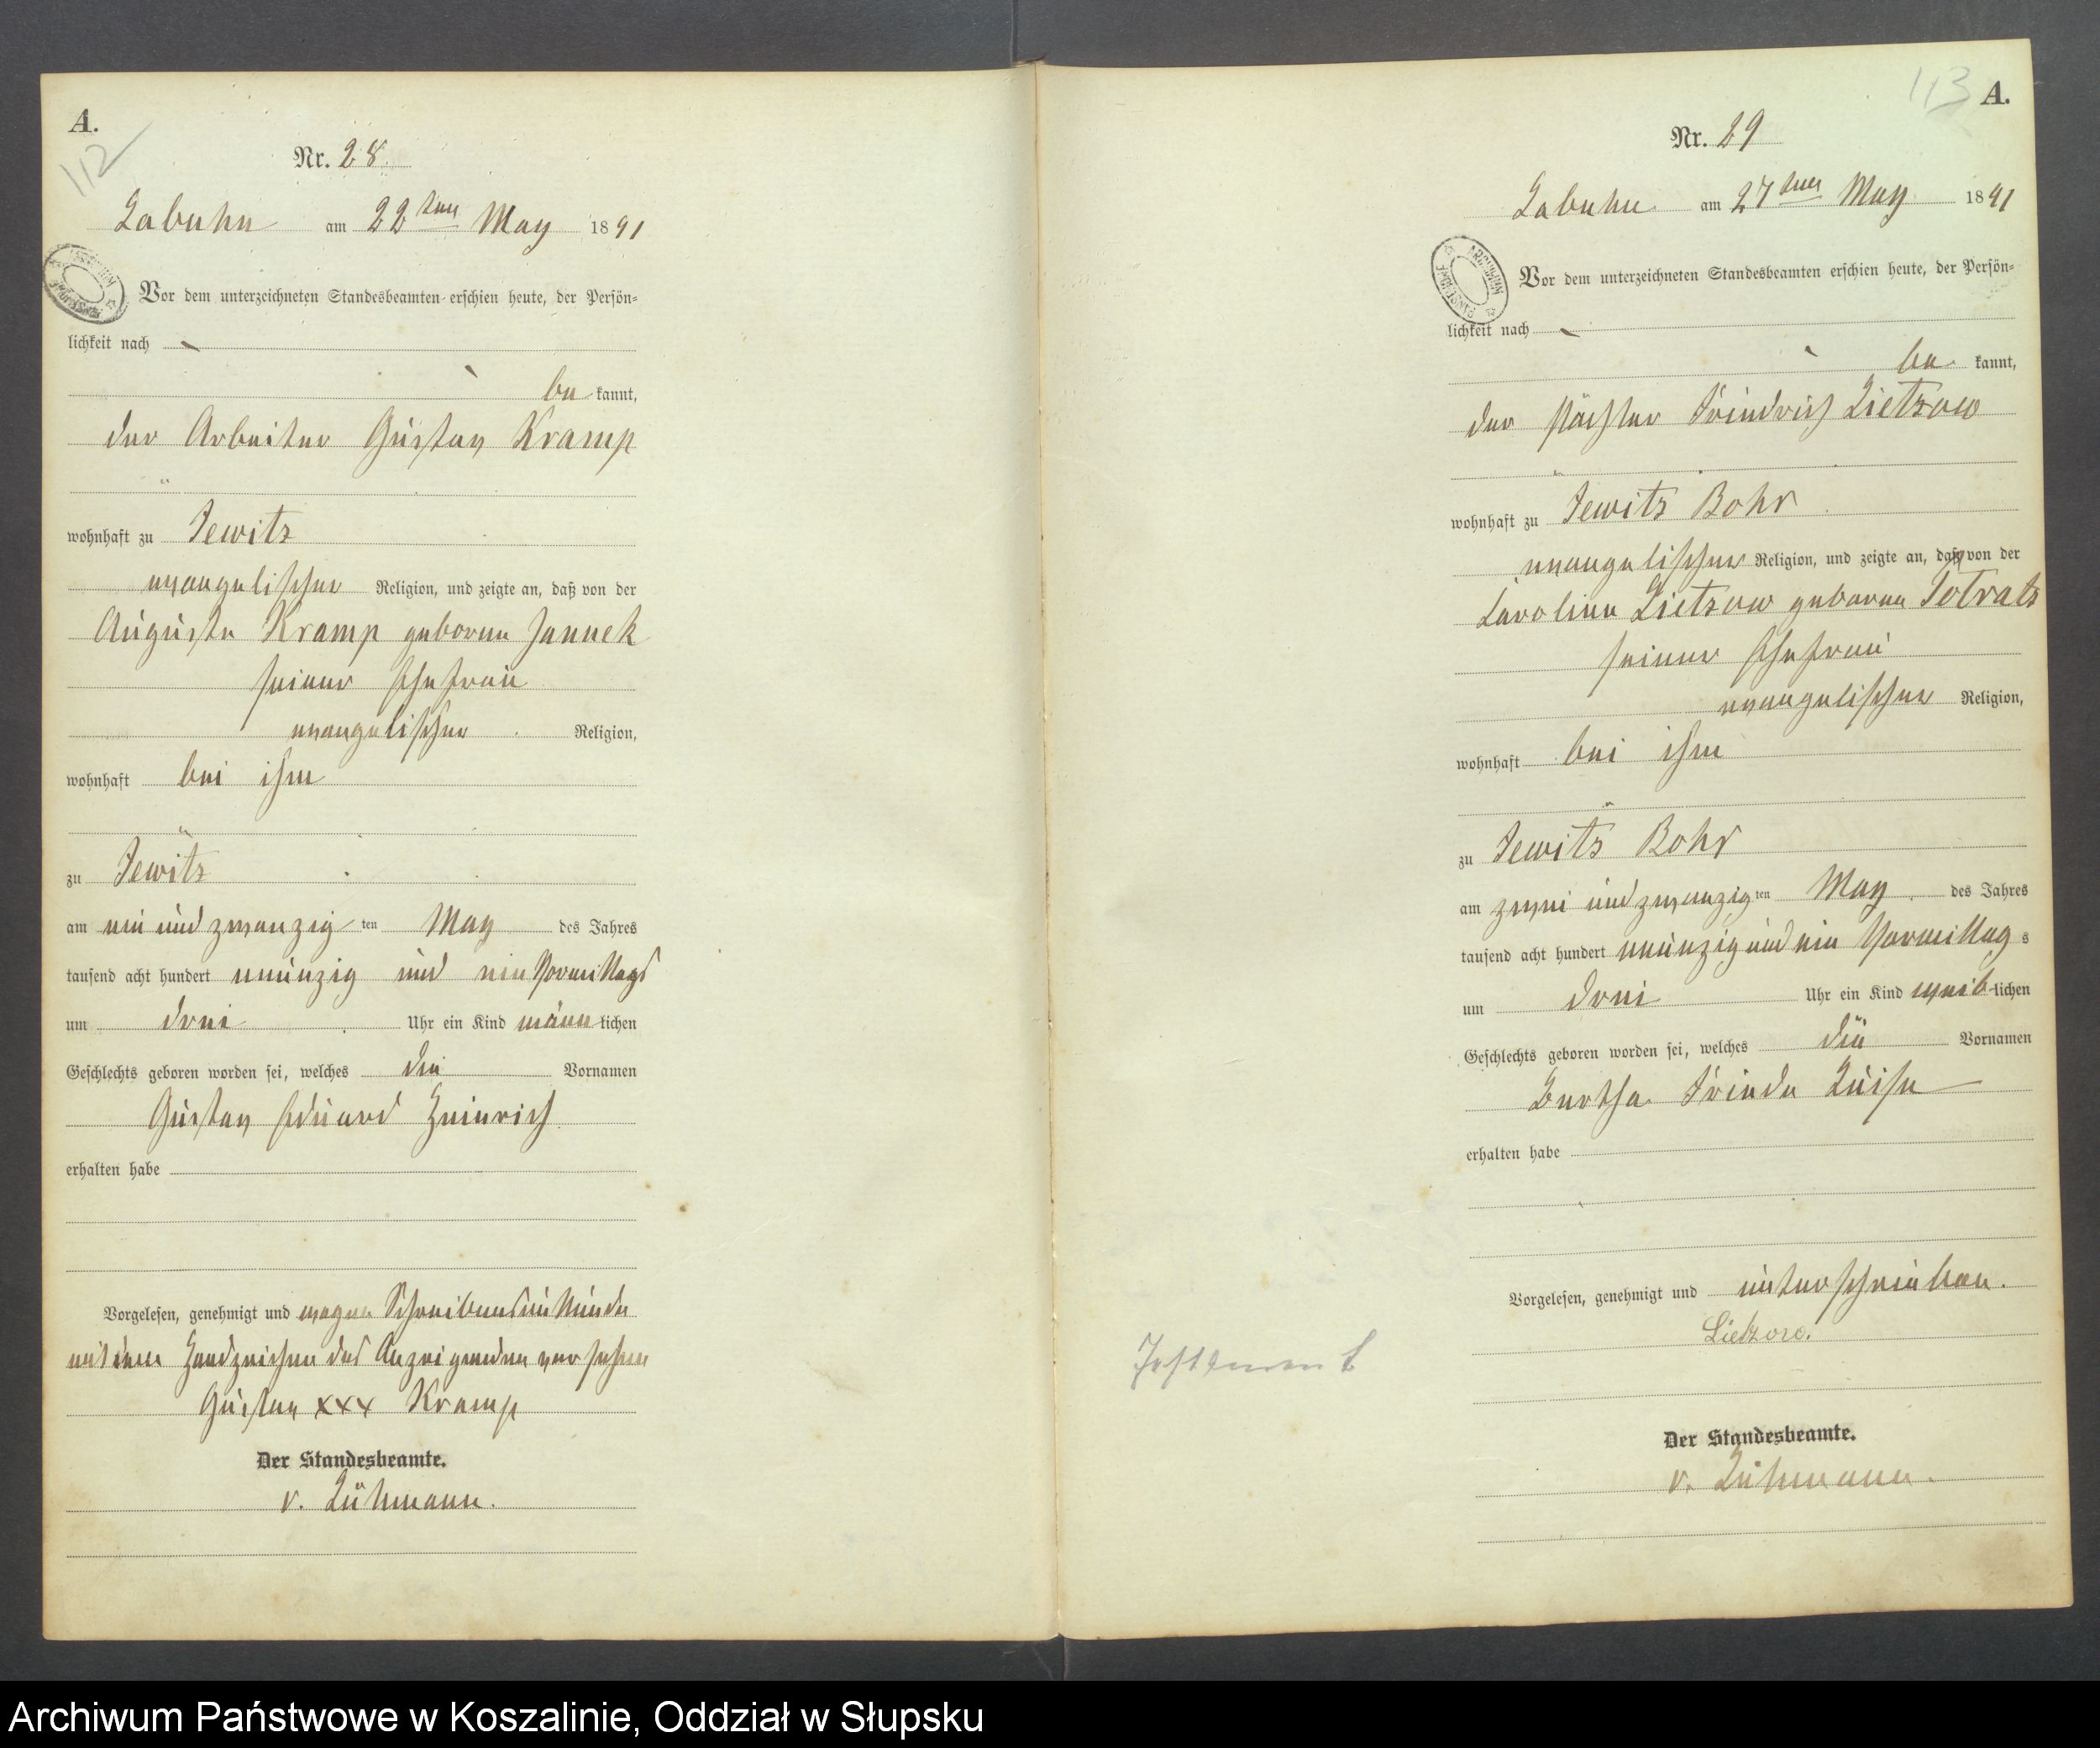 A.
112
Nr. 28.
Labuhn am 22ten May 1891
Vor dem unterzeichneten Standesbeamten erschien heute, der Persön-
lichkeit nach
be kannt,
der Arbeiter Gustav Kramp
wohnhaft zu Jewitz
evangelischer Religion, und zeigte an, daß von der
Auguste Kramp geborene Jannek
seiner Ehefrau
evangelischer Religion,
wohnhaft bei ihm
zu Jewitz
am ein und zwanzig ten May des Jahres
tausend acht hundert neunzig und ein Vormittags
um drei Uhr ein Kind männ lichen
Geschlechts geboren worden sei, welches die Vornamen
Gustav Eduard Heinrich
erhalten habe
Vorgelesen, genehmigt und wegen Schreibensunkunde
mit dem Handzeichen des Anzeigenden versehen
Gustav xxx Kramp
Der Standesbeamte.
v. Lühmann.
113
A.
Nr. 29
Labuhn am 27ten May 1891
Vor dem unterzeichneten Standesbeamten erschien heute, der Persön-
lichkeit nach
be kannt,
der Pächter Friedrich Lietzow
wohnhaft zu Jewitz Bohr
evangelischer Religion, und zeigte an, daß von der
Caroline Lietzow geborene
seiner Ehefrau
evangelischer Religion,
wohnhaft bei ihm
zu Jewitz Bohr
am zwei und zwanzig ten May des Jahres
tausend acht hundert neunzig und ein Vormittag s
um drei Uhr ein Kind weib lichen
Geschlechts geboren worden sei, welches die Vornamen
Bertha Frieda Luise
erhalten habe
Vorgelesen, genehmigt und unterschrieben.
Lietzow.
Der Standesbeamte.
v. Lühmann.
Archiwum Państwowe w Koszalinie, Oddział w Słupsku